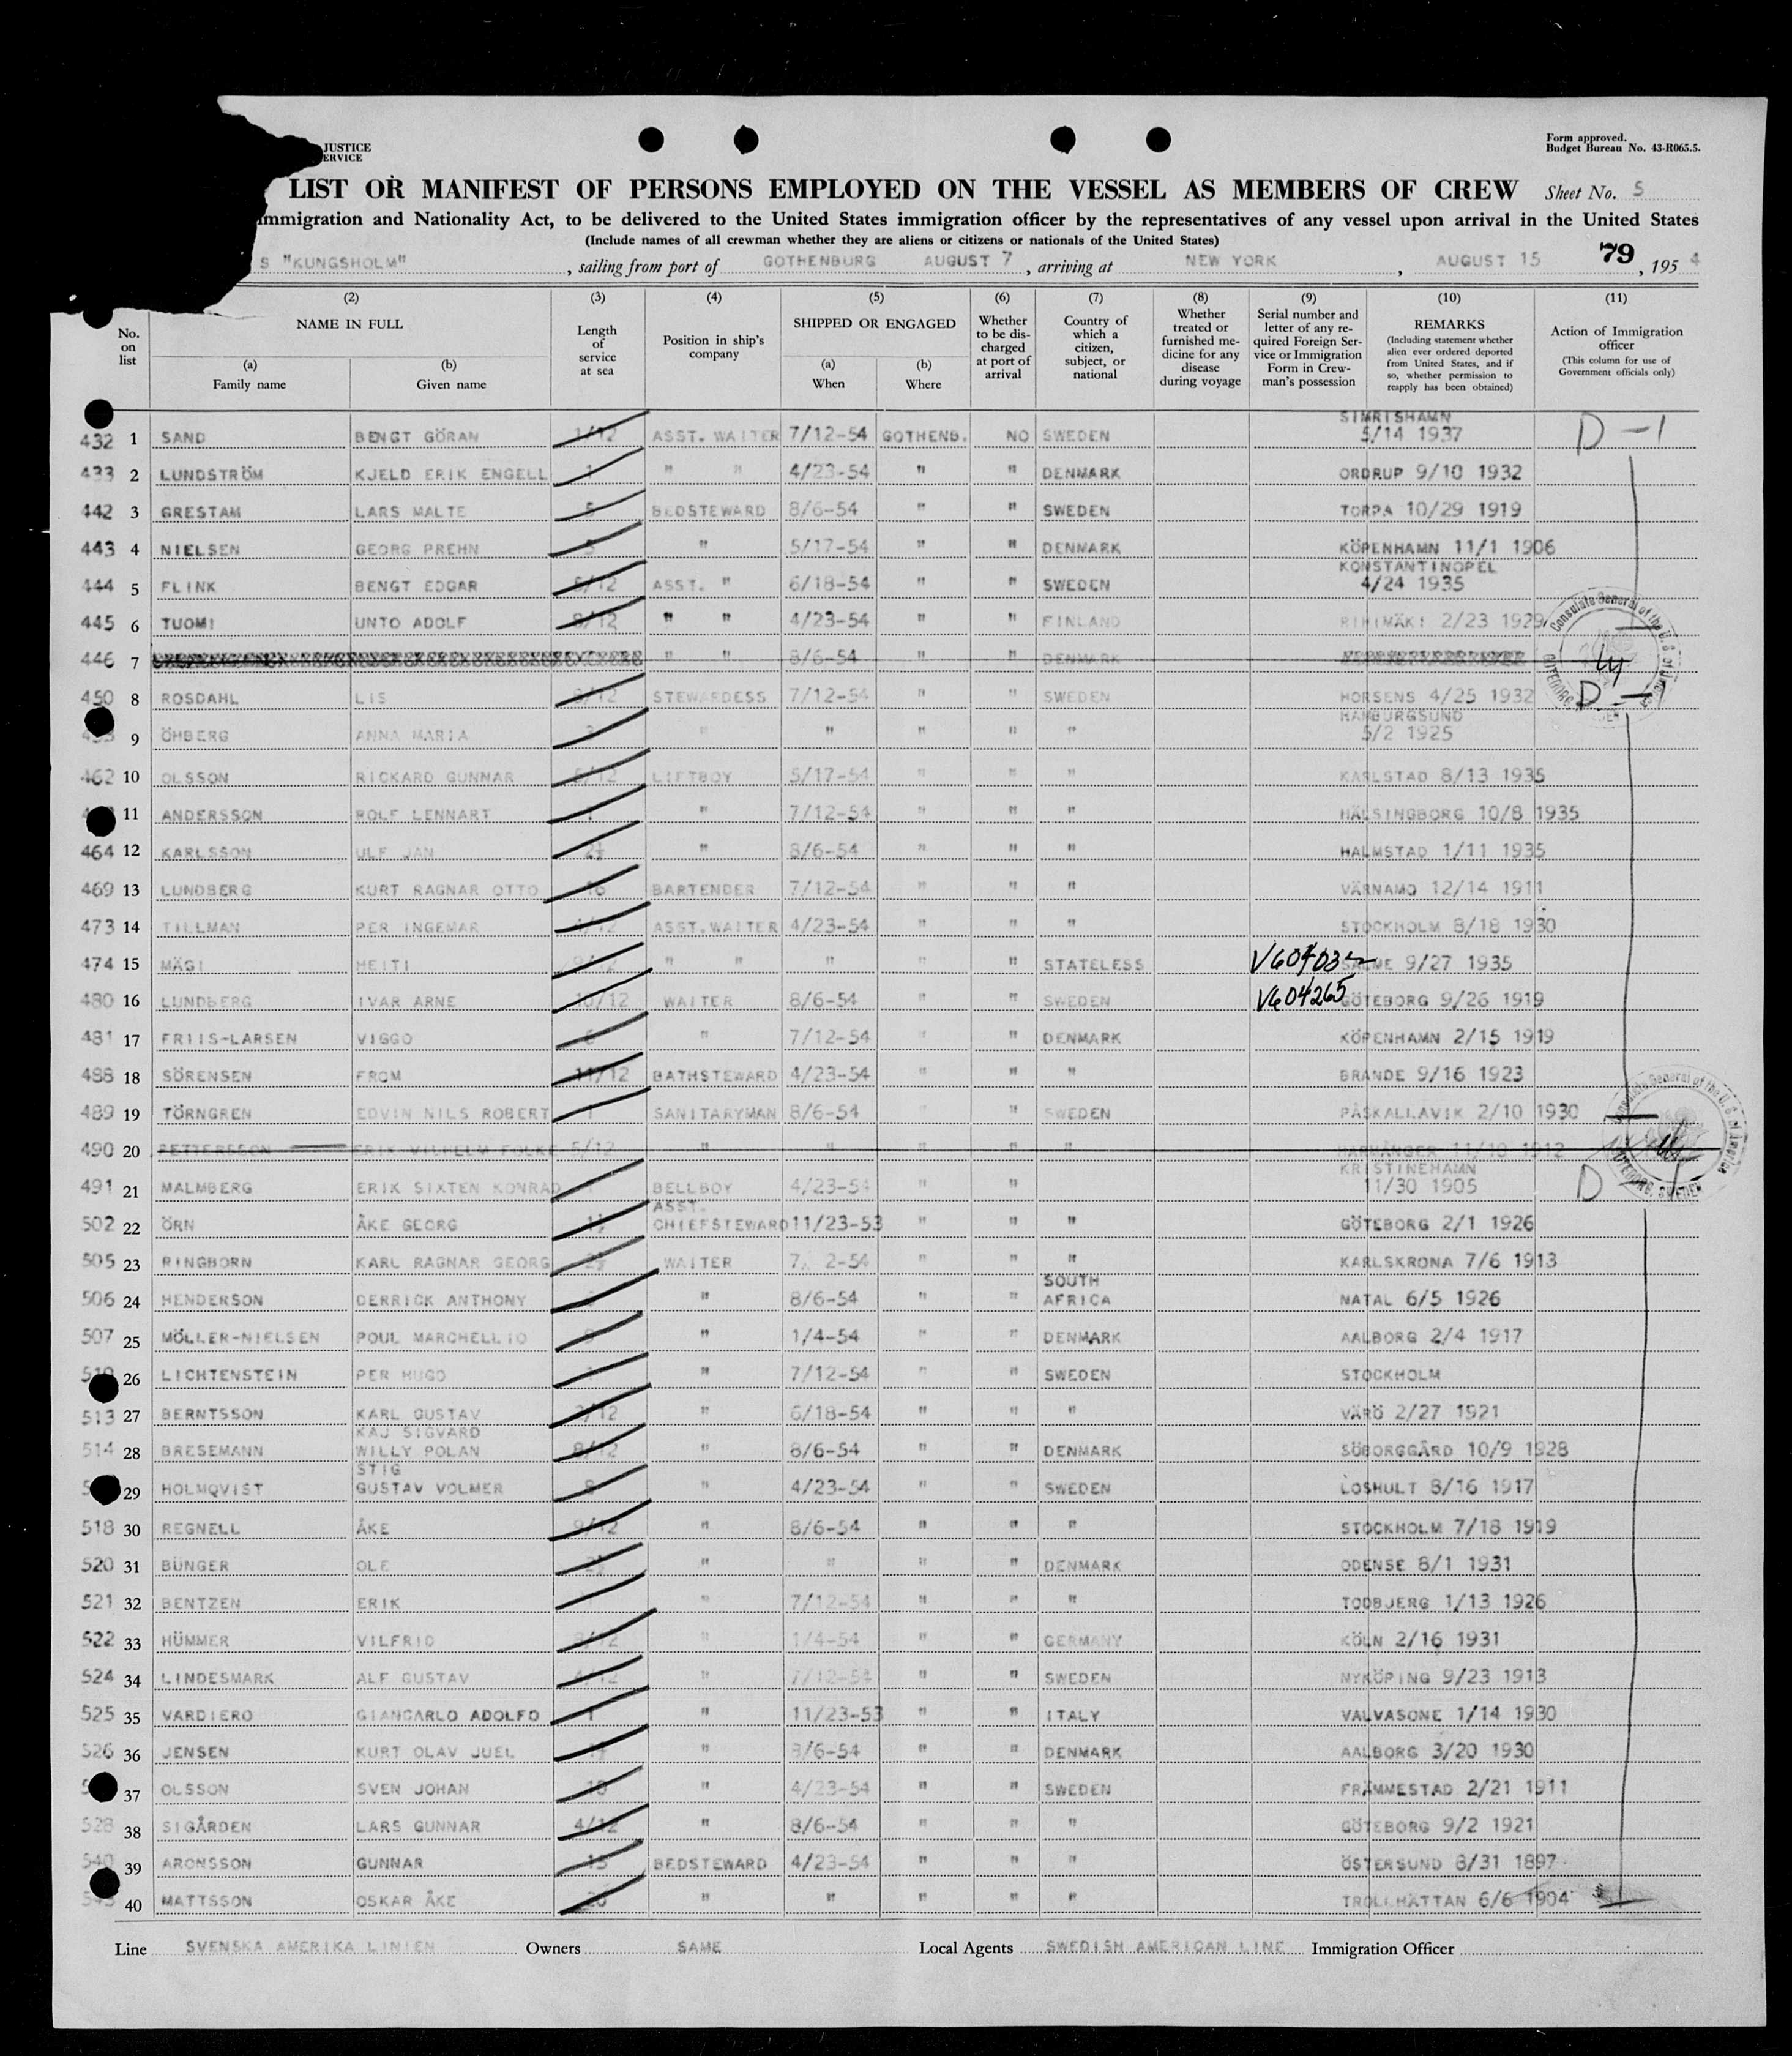 JUSTICE
ERVICE
Form approved.
Budget Bureau No. 43-R065.5.
LIST OR MANIFEST OF PERSONS EMPLOYED ON THE VESSEL AS MEMBERS OF CREW Sheet No. 5
Immigration and Nationality Act, to be delivered to the United States immigration officer by the representatives of any vessel upon arrival in the United States
(Include names of all crewman whether they are aliens or citizens or nationals of the United States)
S "KUNGSHOLM" , sailing from port of GOTHENBURG AUGUST 7 , arriving at NEW YORK , AUGUST 15 79 , 1954
No. on list
(2) NAME IN FULL
(a) Family name
(b) Given name
(3) Length of service at sea
(4) Position in ship's company
(5) SHIPPED OR ENGAGED
(a) When
(b) Where
(6) Whether to be discharged at port of arrival
(7) Country of which a citizen, subject, or national
(8) Whether treated or furnished medicine for any disease during voyage
(9) Serial number and letter of any required Foreign Service or Immigration Form in Crewman's possession
(10) REMARKS (Including statement whether alien ever ordered deported from United States, and if so, whether permission to reapply has been obtained)
(11) Action of Immigration officer (This column for use of Government officials only)
432 1 SAND BENGT GÖRAN 1/12 ASST. WAITER 7/12-54 GOTHENB. NO SWEDEN SIMRISHAMN 5/14 1937 D-1
433 2 LUNDSTRÖM KJELD ERIK ENGELL 1 " " 4/23-54 " " DENMARK ORDRUP 9/10 1932
442 3 GRESTAM LARS MALTE 5 BEDSTEWARD 8/6-54 " " SWEDEN TORPA 10/29 1919
443 4 NIELSEN GEORG PREHN " 5/17-54 " " DENMARK KÖPENHAMN 11/1 1906
444 5 FLINK BENGT EDGAR ASST. " 6/18-54 " " SWEDEN KONSTANTINOPEL 4/24 1935
445 6 TUOMI UNTO ADOLF " " 4/23-54 " " FINLAND RIHIMÄKI 2/23 1929
446 7 " " 8/6-54 " " DENMARK
450 8 ROSDAHL LIS STEWARDESS 7/12-54 " " SWEDEN HORSENS 4/25 1932 D-1
9 ÖHBERG ANNA MARIA " " " " " HAMBURGSUND 5/2 1925
462 10 OLSSON RICKARD GUNNAR LIFTBOY 5/17-54 " " " KARLSTAD 8/13 1935
11 ANDERSSON ROLF LENNART " 7/12-54 " " " HÄLSINGBORG 10/8 1935
464 12 KARLSSON ULF JAN 2½ " 8/6-54 " " " HALMSTAD 1/11 1935
469 13 LUNDBERG KURT RAGNAR OTTO 16 BARTENDER 7/12-54 " " " VÄRNAMO 12/14 1911
473 14 TILLMAN PER INGEMAR ASST.WAITER 4/23-54 " " " STOCKHOLM 8/18 1930
474 15 MÄGI HEITI " " " " " STATELESS SALME 9/27 1935
480 16 LUNDBERG IVAR ARNE 10/12 WAITER 8/6-54 " " SWEDEN V604265 GÖTEBORG 9/26 1919
481 17 FRIIS-LARSEN VIGGO " 7/12-54 " " DENMARK KÖPENHAMN 2/15 1919
488 18 SÖRENSEN FROM 11/12 BATHSTEWARD 4/23-54 " " " BRANDE 9/16 1923
489 19 TÖRNGREN EDVIN NILS ROBERT 1 SANITARYMAN 8/6-54 " " SWEDEN PÅSKALLAVIK 2/10 1930
490 20 PETTERSSON ERIK VILHELM FOLKE 5/12 " " " " " HARMÅNGER 11/10 1912
491 21 MALMBERG ERIK SIXTEN KONRAD BELLBOY 4/23-54 " " KRISTINEHAMN 11/30 1905 D
502 22 ÖRN ÅKE GEORG ASST. CHIEFSTEWARD 11/23-53 " " " GÖTEBORG 2/1 1926
505 23 RINGBORN KARL RAGNAR GEORG WAITER 7/ 2-54 " " " KARLSKRONA 7/6 1913
506 24 HENDERSON DERRICK ANTHONY " 8/6-54 " " SOUTH AFRICA NATAL 6/5 1926
507 25 MÖLLER-NIELSEN POUL MARCHELLIO " 1/4-54 " " DENMARK AALBORG 2/4 1917
26 LICHTENSTEIN PER HUGO " 7/12-54 " " SWEDEN STOCKHOLM
513 27 BERNTSSON KARL GUSTAV " 6/18-54 " " " VÄRÖ 2/27 1921
514 28 BRESEMANN KAJ SIGVARD WILLY POLAN 8/12 " 8/6-54 " " DENMARK SÖBORGGÅRD 10/9 1928
29 HOLMQVIST STIG GUSTAV VOLMER " 4/23-54 " " SWEDEN LOSHULT 8/16 1917
518 30 REGNELL ÅKE 9/12 " 8/6-54 " " " STOCKHOLM 7/18 1919
520 31 BÜNGER OLE " " " " DENMARK ODENSE 8/1 1931
521 32 BENTZEN ERIK " 7/12-54 " " " TODBJERG 1/13 1926
522 33 HÜMMER VILFRID " 1/4-54 " " GERMANY KÖLN 2/16 1931
524 34 LINDESMARK ALF GUSTAV " 7/12-54 " " SWEDEN NYKÖPING 9/23 1913
525 35 VARDIERO GIANCARLO ADOLFO 1 " 11/23-53 " " ITALY VALVASONE 1/14 1930
526 36 JENSEN KURT OLAV JUEL " 8/6-54 " " DENMARK AALBORG 3/20 1930
37 OLSSON SVEN JOHAN " 4/23-54 " " SWEDEN FRÄMMESTAD 2/21 1911
528 38 SIGÅRDEN LARS GUNNAR 4/12 " 8/6-54 " " " GÖTEBORG 9/2 1921
540 39 ARONSSON GUNNAR 15 BEDSTEWARD 4/23-54 " " " ÖSTERSUND 8/31 1897
40 MATTSSON OSKAR ÅKE 20 " " " " " TROLLHÄTTAN 6/6 1904
Line SVENSKA AMERIKA LINIEN Owners SAME Local Agents SWEDISH AMERICAN LINE Immigration Officer